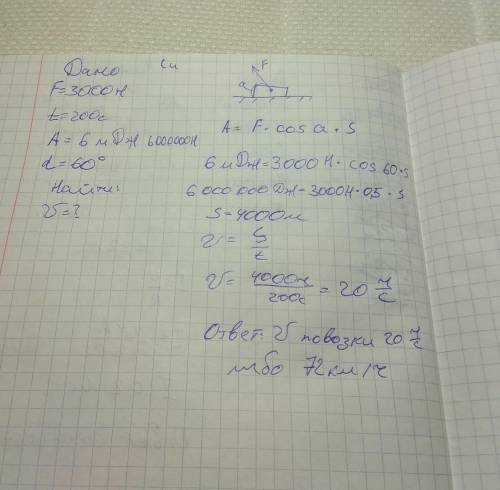 Дано Си
F=3000Н
t=200с
A = 6 мДж 6000000Н
α=60°
Найти:
V=?
F
a
A = F · cos a · S
6 мДж=3000 Н · cos 60·s
6 000 000 Дж=3000Н·0,5 · s
S=4000м
V = S/t
V = 4000м/200с = 20 м/с
Ответ: V повозки 20 м/с
либо 72км/ч